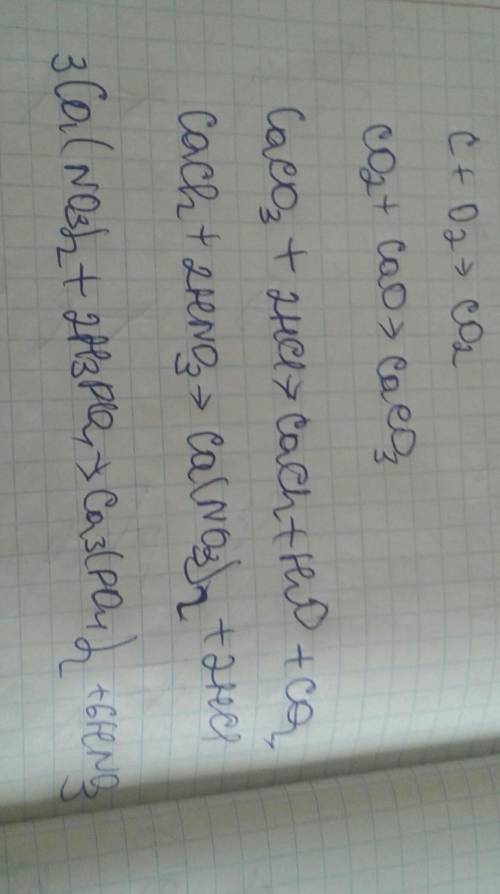 C + O2 > CO2
CO2 + CaO > CaCO3
CaCO3 + 2HCl > CaCl2 + H2O + CO2
CaCl2 + 2HNO3 > Ca(NO3)2 + 2HCl
3Ca(NO3)2 + 2H3PO4 > Ca3(PO4)2 + 6HNO3